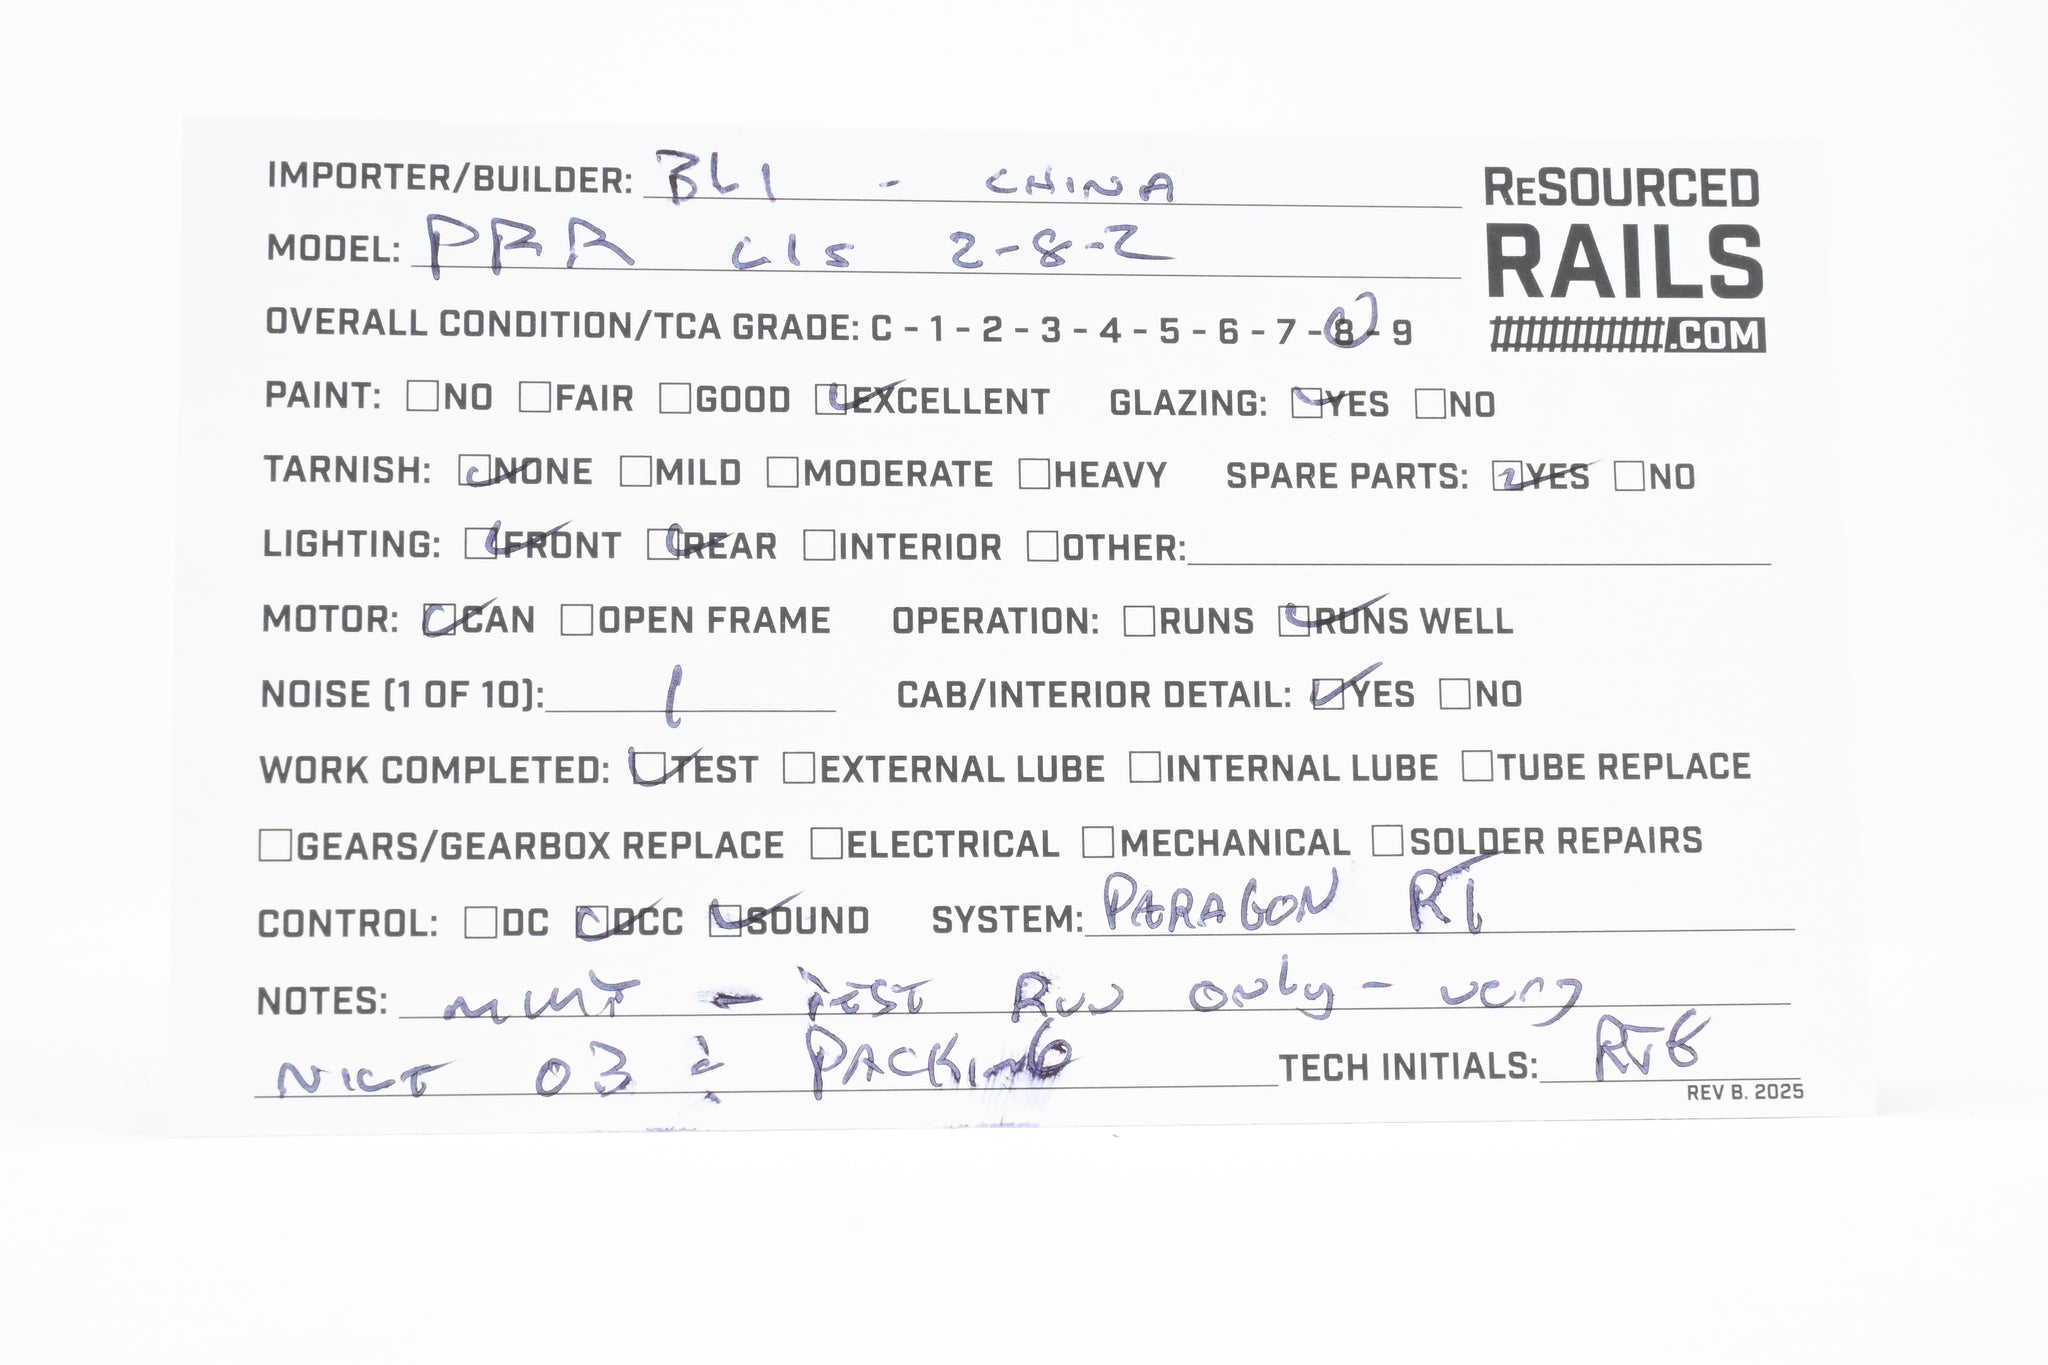 IMPORTER/BUILDER: BLI - CHINA
RESOURCED
RAILS
.COM
MODEL: PRR L1s 2-8-2
OVERALL CONDITION/TCA GRADE: C - 1 - 2 - 3 - 4 - 5 - 6 - 7 - 8 - 9
PAINT: NO FAIR GOOD EXCELLENT GLAZING: YES NO
TARNISH: NONE MILD MODERATE HEAVY SPARE PARTS: YES NO
LIGHTING: FRONT REAR INTERIOR OTHER:
MOTOR: CAN OPEN FRAME OPERATION: RUNS RUNS WELL
NOISE (1 OF 10): 1 CAB/INTERIOR DETAIL: YES NO
WORK COMPLETED: TEST EXTERNAL LUBE INTERNAL LUBE TUBE REPLACE
GEARS/GEARBOX REPLACE ELECTRICAL MECHANICAL SOLDER REPAIRS
CONTROL: DC DCC SOUND SYSTEM: PARAGON
NOTES: MINT - TEST RUN ONLY - VERY
NICE OB & PACKING TECH INITIALS:
REV B. 2025